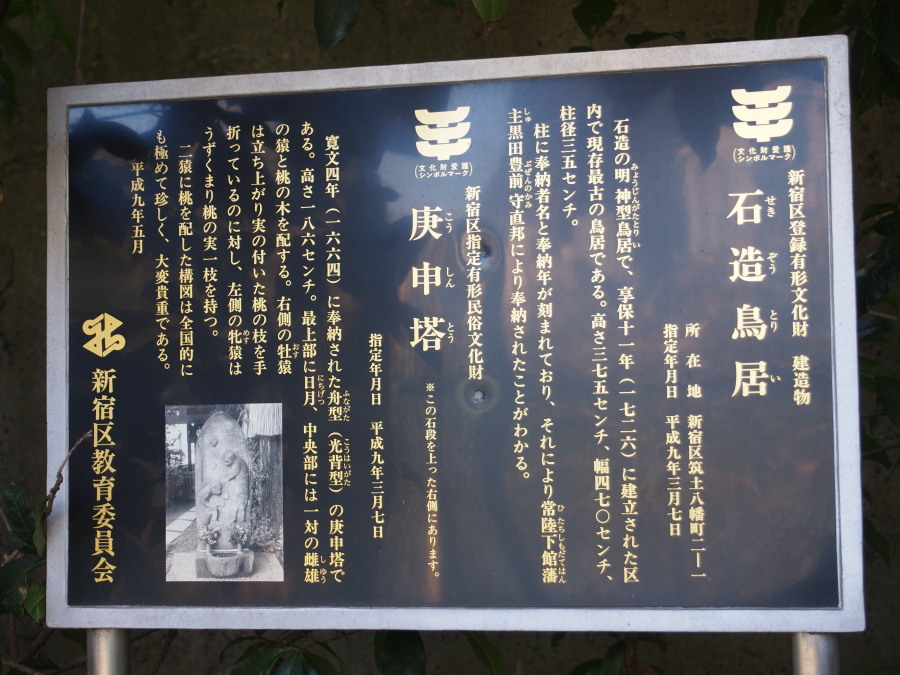 新宿区登録有形文化財　建造物
(文化財愛護
シンボルマーク)
石造鳥居
せきぞうとりい
所在地　新宿区筑土八幡町二―一
指定年月日　平成九年三月七日
石造の明神型鳥居で、享保十一年（一七二六）に建立された区
みょうじんがたとりい
内で現存最古の鳥居である。高さ三七五センチ、幅四七〇センチ、
柱径三五センチ。
柱に奉納者名と奉納年が刻まれており、それにより常陸下館藩
ひたちしもだてはん
主黒田豊前守直邦により奉納されたことがわかる。
しゅ　ぶぜんのかみ
新宿区指定有形民俗文化財
(文化財愛護
シンボルマーク)
庚申塔
こうしんとう
※この石段を上った右側にあります。
指定年月日　平成九年三月七日
寛文四年（一六六四）に奉納された舟型（光背型）の庚申塔で
ふながた　こうはいがた
ある。高さ一八六センチ。最上部に日月、中央部には一対の雌雄
にちげつ　しゆう
の猿と桃の木を配する。右側の牡猿
おす
は立ち上がり実の付いた桃の枝を手
折っているのに対し、左側の牝猿は
めす
うずくまり桃の実一枝を持つ。
二猿に桃を配した構図は全国的に
も極めて珍しく、大変貴重である。
平成九年五月
新宿区教育委員会